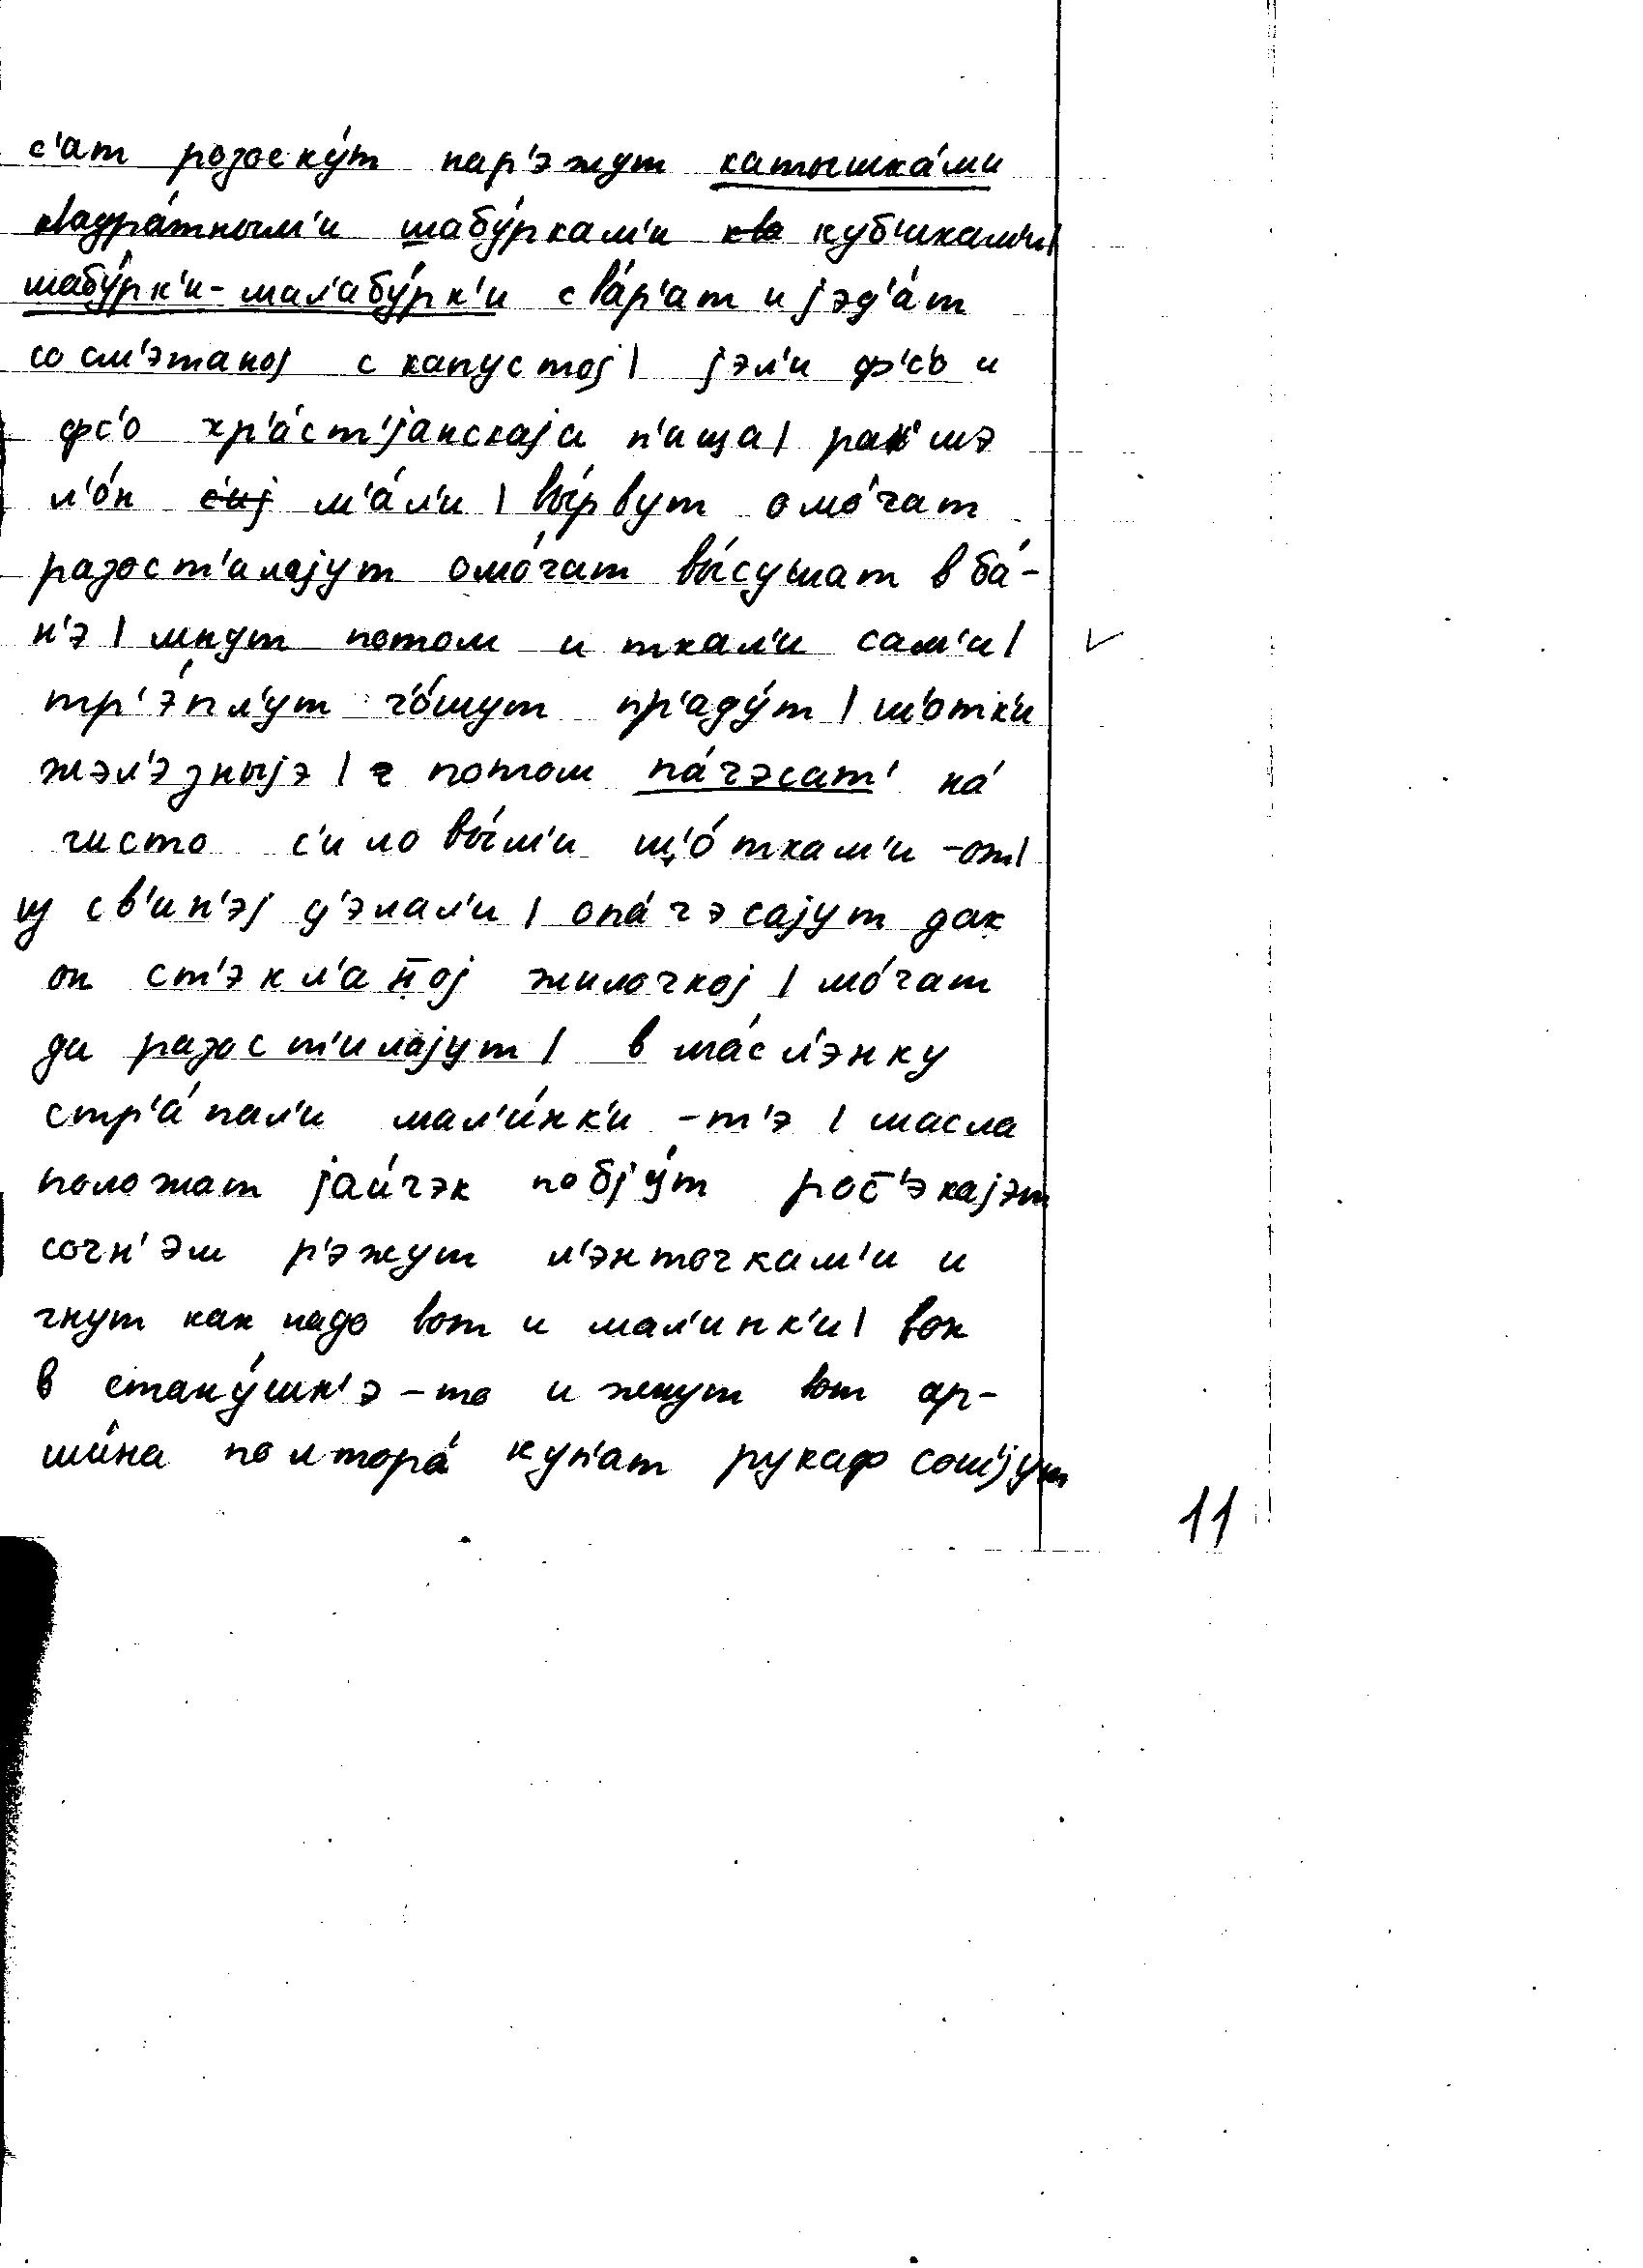 с'ат розоскýт нар'эжут катышкáми
квадрáтным'и шабýркам'и ква куб'икам'и|
шабýрк'и-мал'абýрк'и свáр'ат и jэд'áт
со см'этаноj с капустоj| jэл'и ф'с'о и
фс'о хр'áст'jанскаjа п'ища| ран'шэ
л'óн с'иj м'áл'и | вы́рвут омóчат
разост'илаjут омóчат вы́сушат в бá-
н'э | мнут потом и ткал'и сам'и|
тр'э́пл'ут чóшут пр'адýт | ш'отк'и
жэл'эзныjэ | ч потом пáчэсат' нá
чисто с'иловы́м'и щ'óткам'и -от|
из св'ин'эj д'элал'и | опáчэсаjут дак
он ст'экл'а н̄оj жилочкоj | мóчат
да разост'илаjут | в мáсл'энку
стр'áпал'и мал'и́нк'и -т'э | масла
положат jаи́чэк побjýт рос̄'экаjэт
сочн'эм р'эжут л'энточкам'и и
гнут как надо вот и мал'инк'и| вон
в станýшк'э-то и жнут вот ар-
ши́на полторá куп'ат рукаф сошjут
11